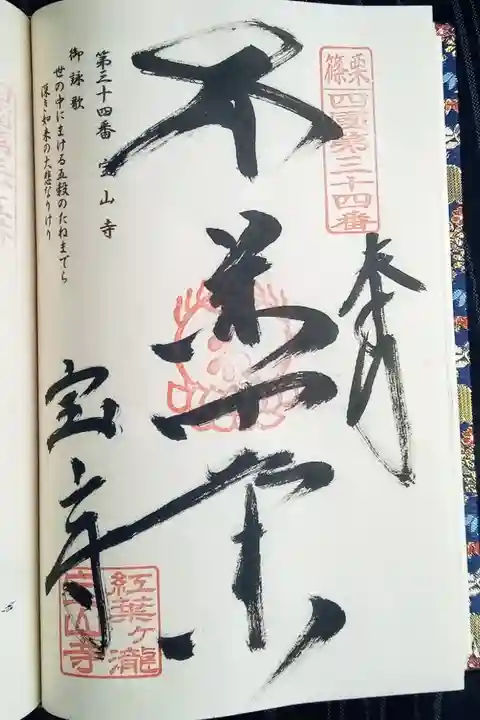 篠栗
四國第三十四番
奉拝
不
宝山寺
紅葉ヶ瀧
宝山寺
第三十四番 宝山寺
御詠歌
世の中にまける五穀のたねまでも
深き如来の大悲なりけり